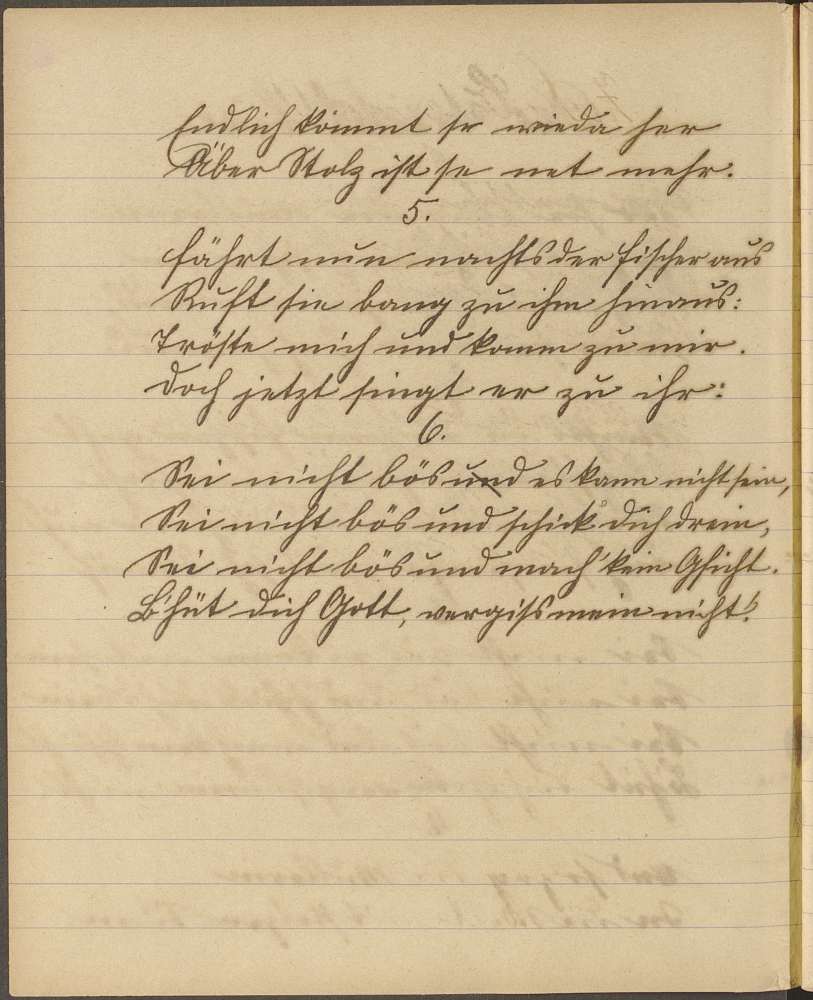 Endlich kommt se wieda her
Aber Stolz ist se net mehr.
5.
Fährt nun nachts der Fischer aus
Ruft sie bang zu ihm hinaus:
Tröste mich und komm zu mir.
Doch jetzt singt er zu ihr:
6.
Sei nicht bös und es kann nicht sein,
Sei nicht bös und schick dich drein,
Sei nicht bös und mach' kein Gsicht.
B'hüt dich Gott, vergiss mein nicht!